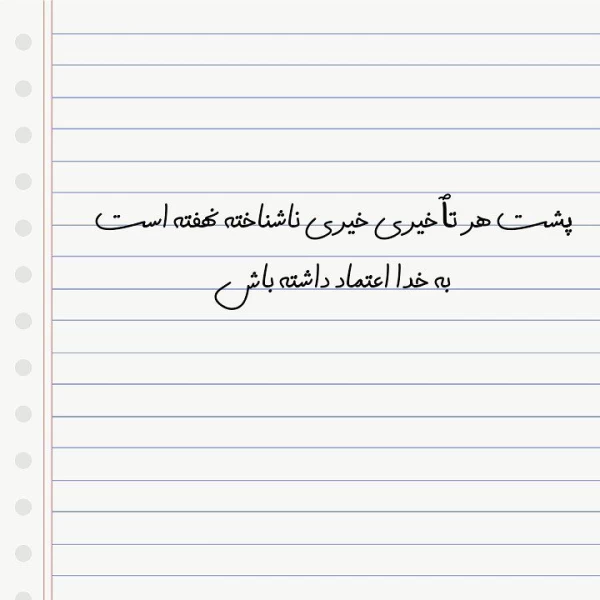 پشت هر تأخیری خیری ناشناخته نهفته است
به خدا اعتماد داشته باش